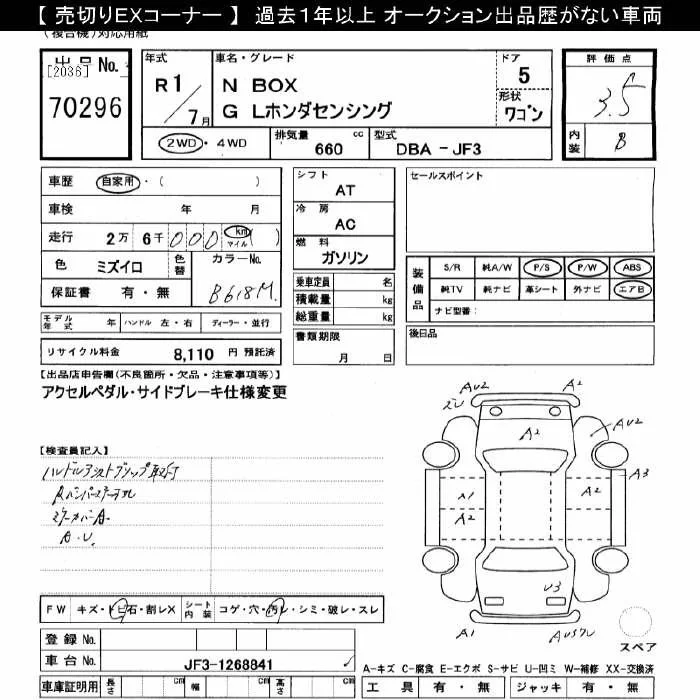 【 売切りEXコーナー 】 過去１年以上 オークション出品歴がない車両
(複合機)対応用紙
出品 No.
[2036]
70296
年式
R1/7月
車名・グレード
N BOX
G Lホンダセンシング
ドア
5
形状
ワゴン
評価点
3.5
内装
B
2WD・4WD
排気量
660 cc
型式
DBA-JF3
車歴
自家用・( )
車検 年 月
走行 2万 6千 000 km マイル ( )
色 ミズイロ
色替
カラーNo.
B618M
保証書 有・無
シフト
AT
冷房
AC
燃料
ガソリン
乗車定員 名
積載量 kg
総重量 kg
モデル年式 年 ハンドル 左・右 ディーラー・並行
リサイクル料金 8,110 円 預託済
書類期限
月 日
セールスポイント
装備品
S/R 純A/W P/S P/W ABS
純TV 純ナビ 革シート 外ナビ エアB
ナビ型番：
後日品
【出品店申告欄(不良箇所・欠品・注意事項等)】
アクセルペダル・サイドブレーキ仕様変更
【検査員記入】
ハンドルアシストグリップ取付
A.U.
AU2
A2
AU2
A2
A3
A1
A2
A2
U3
A1
FW キズ・トビ石・割レX シート内装 コゲ・穴・汚レ・シミ・破レ・スレ
登録 No.
車台 No. JF3-1268841
車庫証明用 長さ cm 幅 cm 高さ cm
スペア
A-キズ C-腐食 E-エクボ S-サビ U-凹ミ W-補修 XX-交換済
工具 有・無 ジャッキ 有・無